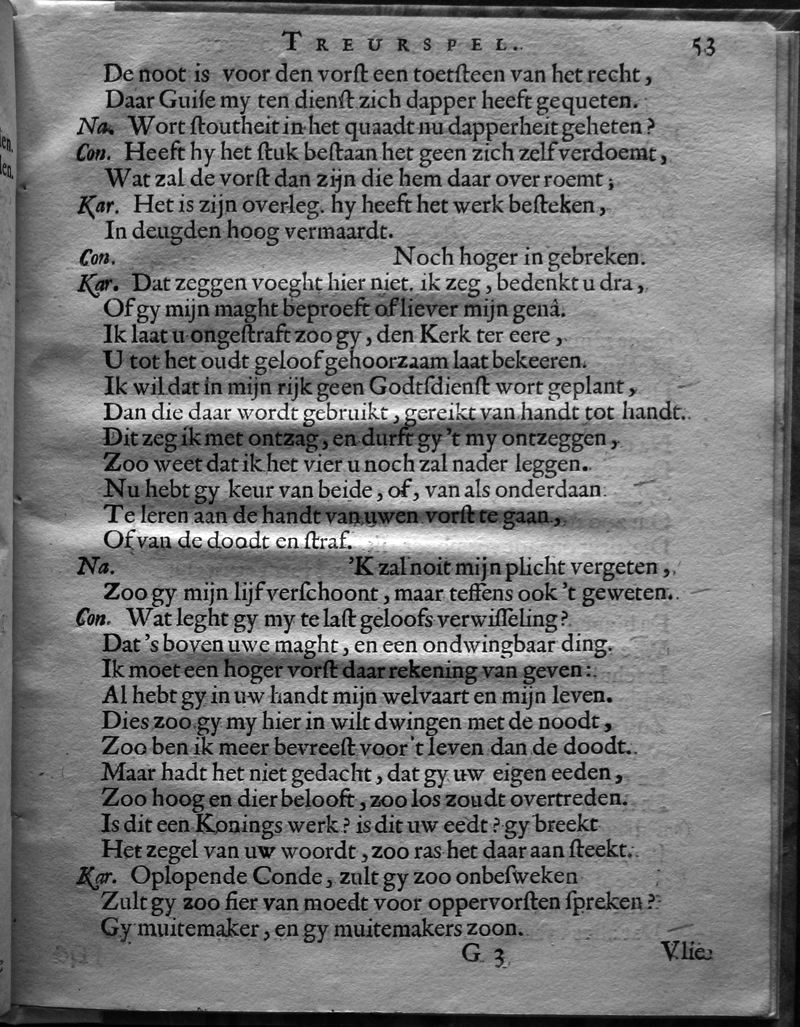 TREURSPEL. 53
De noot is voor den vorſt een toetſteen van het recht,
Daar Guiſe my ten dienſt zich dapper heeft gequeten.
Na. Wort ſtoutheit in het quaadt nu dapperheit geheten?
Con. Heeft hy het ſtuk beſtaan het geen zich zelf verdoemt,
Wat zal de vorſt dan zijn die hem daar over roemt;
Kar. Het is zijn overleg. hy heeft het werk beſteken,
In deugden hoog vermaardt.
Con. Noch hoger in gebreken.
Kar. Dat zeggen voeght hier niet. ik zeg, bedenkt u dra,
Of gy mijn maght beproeft of liever mijn genâ.
Ik laat u ongeſtraft zoo gy, den Kerk ter eere,
U tot het oudt geloof gehoorzaam laat bekeeren.
Ik wil dat in mijn rijk geen Godtſdienſt wort geplant,
Dan die daar wordt gebruikt, gereikt van handt tot handt.
Dit zeg ik met ontzag, en durft gy 't my ontzeggen,
Zoo weet dat ik het vier u noch zal nader leggen.
Nu hebt gy keur van beide, of, van als onderdaan
Te leren aan de handt van uwen vorſt te gaan,
Of van de doodt en ſtraf.
Na. 'K zal noit mijn plicht vergeten,
Zoo gy mijn lijf verſchoont, maar teffens ook 't geweten.
Con. Wat leght gy my te laſt geloofs verwiſſeling?
Dat 's boven uwe maght, en een ondwingbaar ding.
Ik moet een hoger vorſt daar rekening van geven:
Al hebt gy in uw handt mijn welvaart en mijn leven.
Dies zoo gy my hier in wilt dwingen met de noodt,
Zoo ben ik meer bevreeſt voor 't leven dan de doodt.
Maar hadt het niet gedacht, dat gy uw eigen eeden,
Zoo hoog en dier belooft, zoo los zoudt overtreden.
Is dit een Konings werk? is dit uw eedt? gy breekt
Het zegel van uw woordt, zoo ras het daar aan ſteekt.
Kar. Oplopende Conde, zult gy zoo onbeſweken
Zult gy zoo fier van moedt voor oppervorſten ſpreken?
Gy muitemaker, en gy muitemakers zoon.
G 3 Vlie